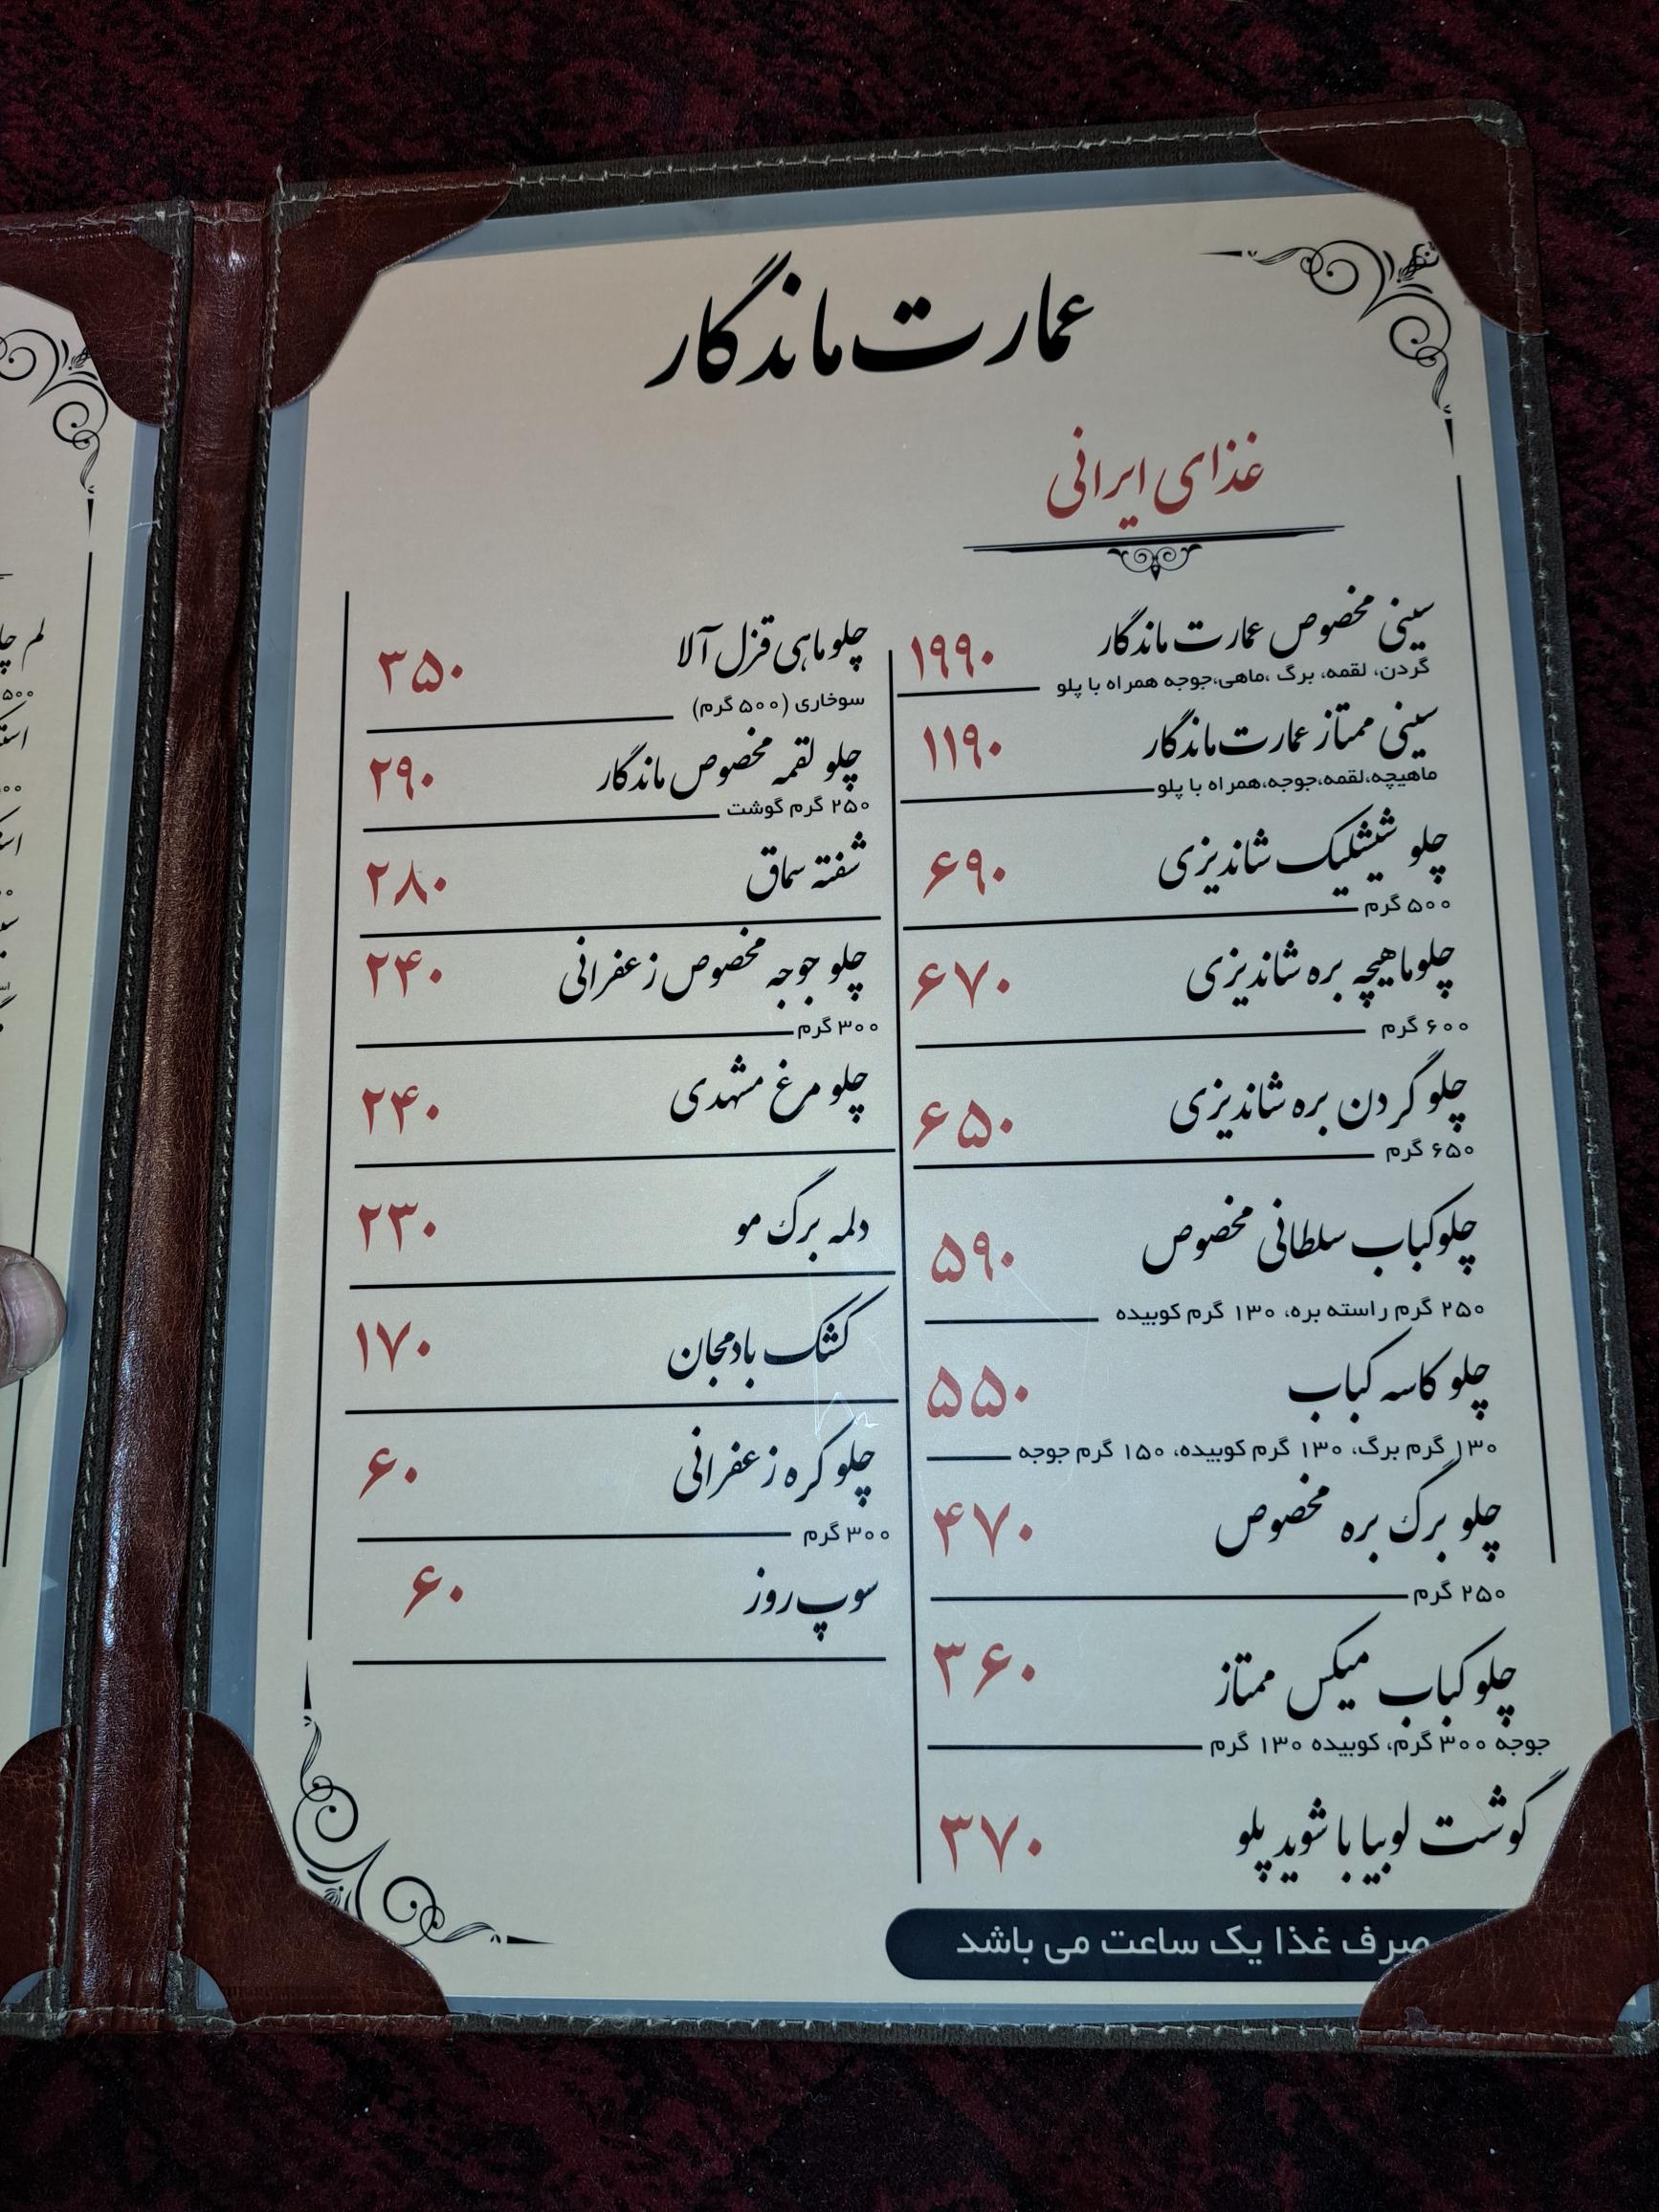 عمارت ماندگار
غذای ایرانی
سینی مخصوص عمارت ماندگار ۱۹۹۰
گردن، لقمه، برگ ،ماهی،جوجه همراه با پلو
سینی ممتاز عمارت ماندگار ۱۱۹۰
ماهیچه،لقمه،جوجه،همراه با پلو
چلو شیشلیک شاندیزی ۶۹۰
۵۰۰ گرم
چلو ماهیچه بره شاندیزی ۶۷۰
۶۰۰ گرم
چلو گردن بره شاندیزی ۶۵۰
۶۵۰ گرم
چلو کباب سلطانی مخصوص ۵۹۰
۲۵۰ گرم راسته بره، ۱۳۰ گرم کوبیده
چلو کاسه کباب ۵۵۰
۱۳۰ گرم برگ، ۱۳۰ گرم کوبیده، ۱۵۰ گرم جوجه
چلو برگ بره مخصوص ۴۷۰
۲۵۰ گرم
چلو کباب میکس ممتاز ۳۶۰
جوجه ۳۰۰ گرم، کوبیده ۱۳۰ گرم
گوشت لوبیا با شوید پلو ۳۷۰
صرف غذا یک ساعت می باشد
چلو ماهی قزل آلا ۳۵۰
سوخاری (۵۰۰ گرم)
چلو لقمه مخصوص ماندگار ۲۹۰
۲۵۰ گرم گوشت
شفته سماق ۲۸۰
چلو جوجه مخصوص زعفرانی ۲۴۰
۳۰۰ گرم
چلو مرغ مشهدی ۲۴۰
دلمه برگ مو ۲۳۰
کشک بادمجان ۱۷۰
چلو کره زعفرانی ۶۰
۳۰۰ گرم
سوپ روز ۶۰